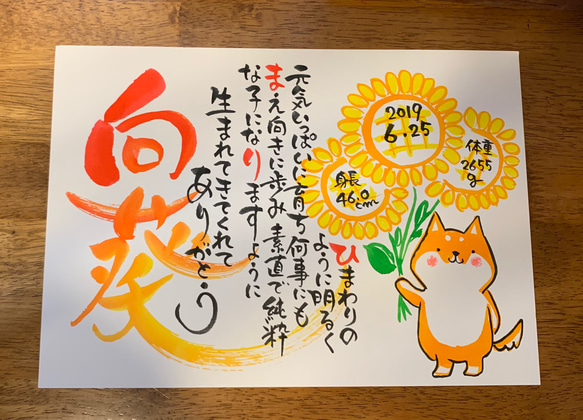 2019
6.25
体重
2655
g
身長
46.0
cm
ひまわりの
ように明るく
元気いっぱいに育ち何事にも
まえ向きに歩み素直で純粋
な子になりますように
生まれてきてくれて
ありがとう
向葵